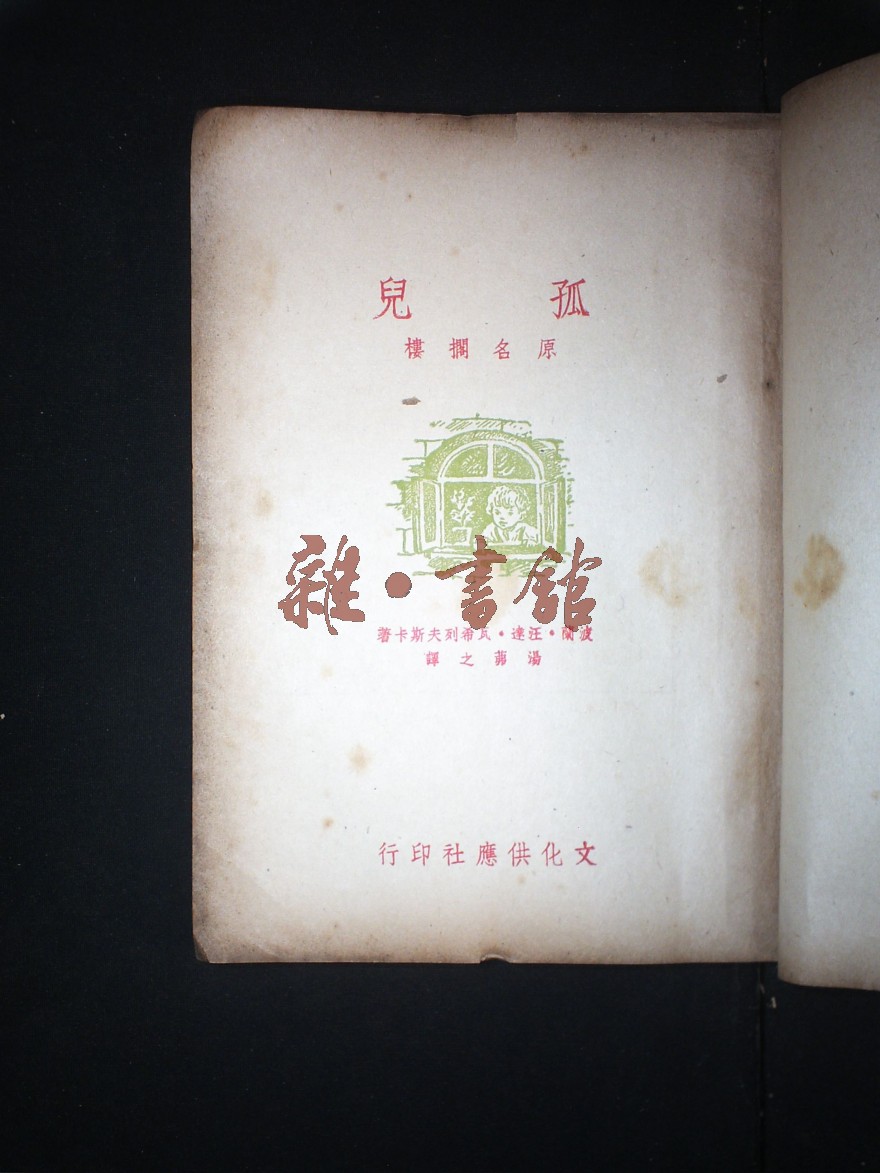 孤兒
原名擱樓
雜·書館
波蘭·汪達·瓦希列夫斯卡著
湯茀之譯
文化供應社印行